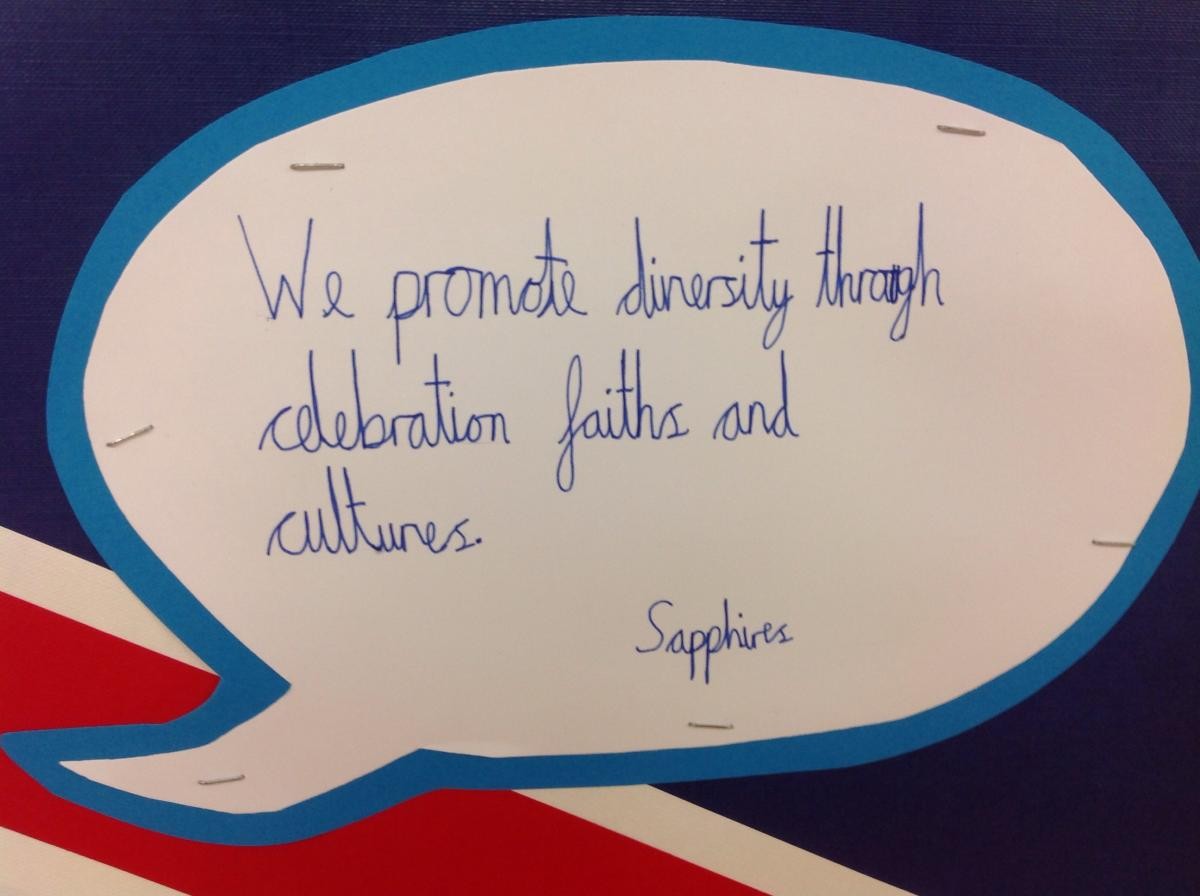 We promote diversity through
celebration faiths and
cultures.
Sapphires